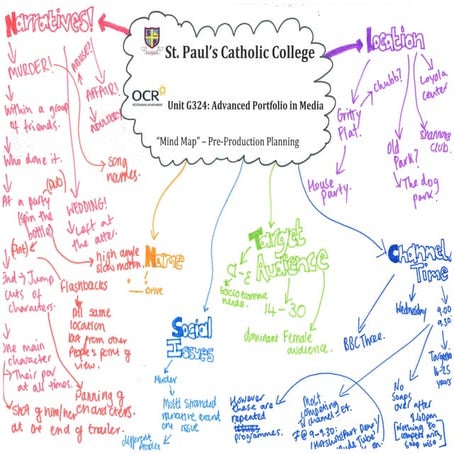 St. Paul's Catholic College
OCR
Unit G324: Advanced Portfolio in Media
"Mind Map" – Pre-Production Planning
Narratives!
MURDER!
Within a group
of friends.
Who done it.
At a party
(spin the
bottle)
(Pub)
2nd → Jump
cuts of
characters.
main
character
→ Their pov
at all times.
Shot of him/her
at end of trailer.
AFFAIR!
Song
WEDDING!
Left at
the alter.
high angle
slow motion
Flashbacks
All same
location
but from other
People's point of
view.
Panning of
characters
Name
Drive
Social
Issues
Murder
Multi stranded
narrative around one
issue
different
Target
Audience
C-E
Socio economic
14-30
dominant Female
audience.
Location
Chubb?
Loyola
center
Gritty
Flat.
House
Party.
Old
Park?
The dog
park?
club.
Channel
Time
Wednesday
9.00
9.30
BBC Three.
Targets
16-25
years
No
soaps over
after
[Nothing to
compete with
soap wise]
However
these are
repeated
programmes.
Most
competing
channel